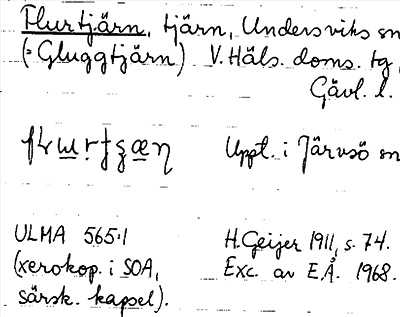 Flurtjärn, tjärn, Undersviks sn
(= Gluggtjärn) V. Häls. doms. tg,
Gävl. l.
Uppt. i Järvsö sn
ULMA 565:1
H. Geijer 1911, s. 74.
(xerokop. i SOA,
Exc. av E.Å. 1968.
särsk. kapsel).